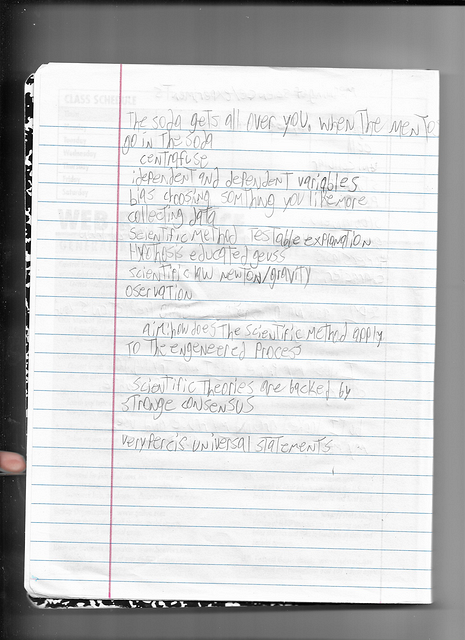 The soda gets all over you, when The mento
go in The soda
centrafuse
idependent and dependent variables
bias choosing somthing you like more
collecting data
scientific method Testable explanation
Hypthosis educated geuss
scientific law newton/gravity
oservation
aim: how does The scientific method apply
To The engeneered Process
scientific Theories are backed by
stronge consensus
universal statements
CLASS SCHEDULE